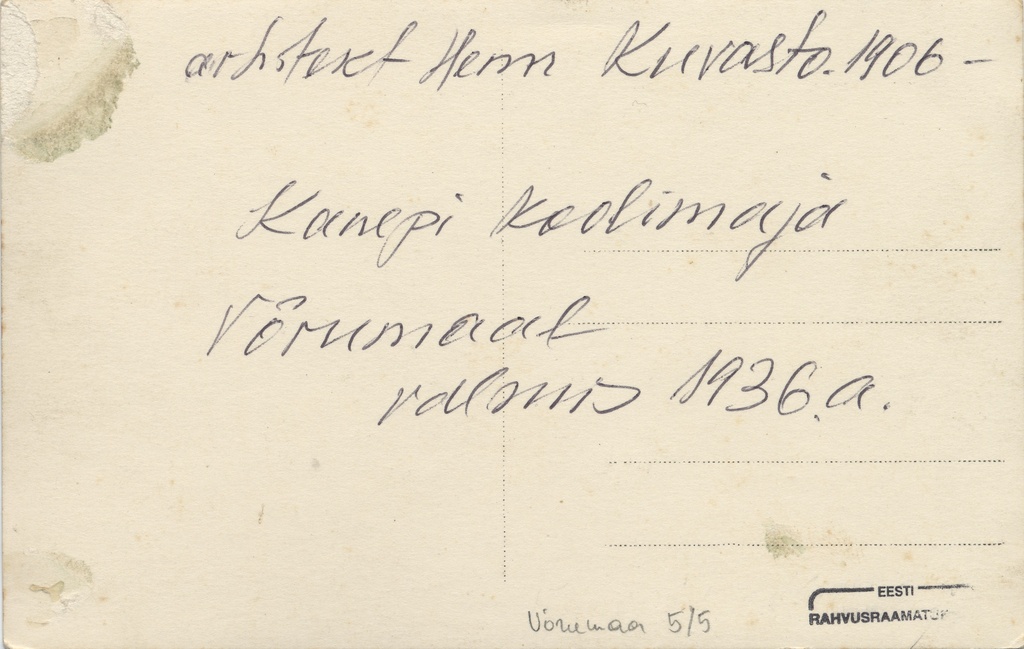 arhitekt Herm Kuvasto. 1906 -
Kanepi koolimaja
Võrumaal
valmis 1936.a.
Võrumaa 5/5
EESTI
RAHVUSRAAMATUK